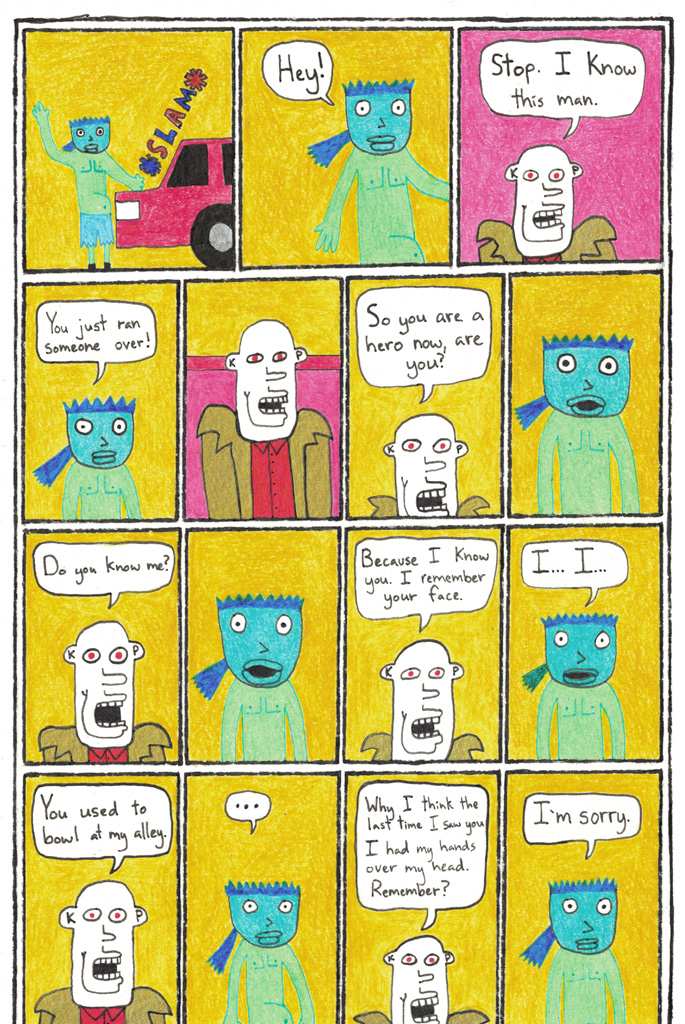 SLAM
Hey!
Stop. I know
this man.
K P
You just ran
someone over!
K P
So you are a
hero now, are
you?
K P
Do you know me?
K P
Because I know
you. I remember
your face.
K P
I... I...
You used to
bowl at my alley.
K P
...
Why I think the
last time I saw you
I had my hands
over my head.
Remember?
K P
I'm sorry.